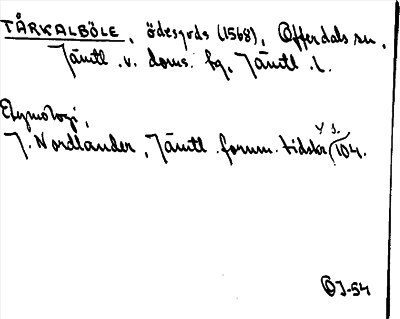 TÅRKALBÖLE, ödesgrds (1568), Offerdals sn,
Jämtl. v. doms. fg, Jämtl. l.
Etymologi,
J. Nordlander, Jämtl. fornm. tidskr. V s. 104.
ÖJ-54